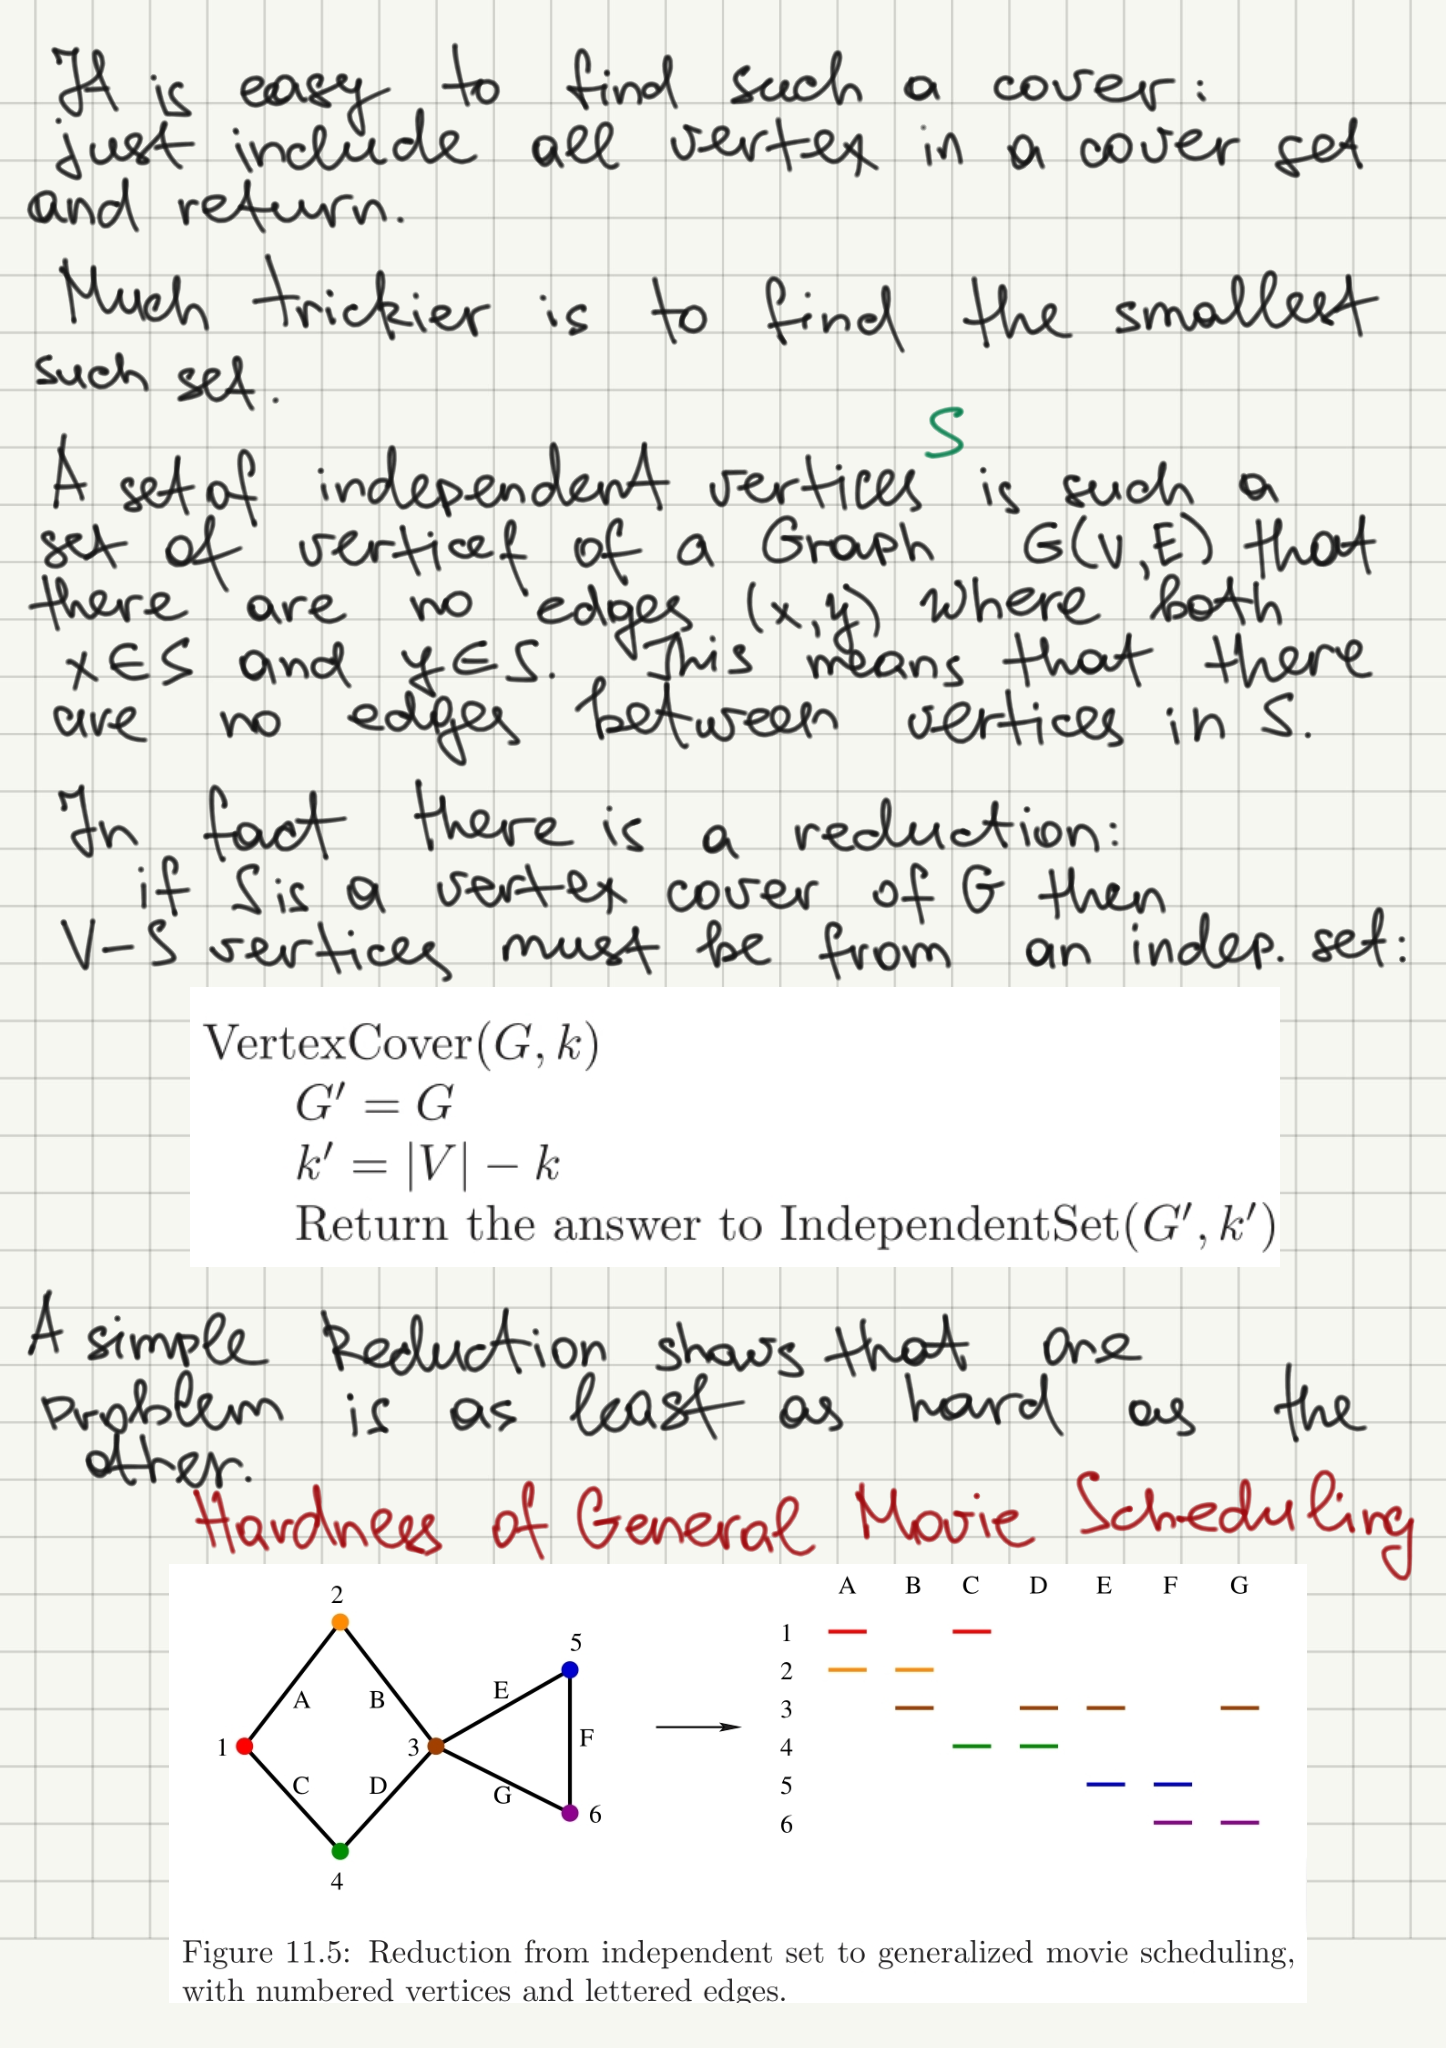 It is easy to find such a cover:
just include all vertex in a cover set
and return.
Much trickier is to find the smallest
such set.
S
A set of independent vertices is such a
set of vertices of a Graph G(V,E) that
there are no edges (x,y) where both
x∈S and y∈S. This means that there
are no edges between vertices in S.
In fact there is a reduction:
if S is a vertex cover of G then
V-S vertices must be from an indep. set:
VertexCover(G, k)
G′ = G
k′ = |V| − k
Return the answer to IndependentSet(G′, k′)
A simple Reduction shows that one
problem is as least as hard as the
other.
Hardness of General Movie Scheduling
2
5
A B E
F
1 3
C D G
6
4
A B C D E F G
1
2
3
4
5
6
Figure 11.5: Reduction from independent set to generalized movie scheduling,
with numbered vertices and lettered edges.